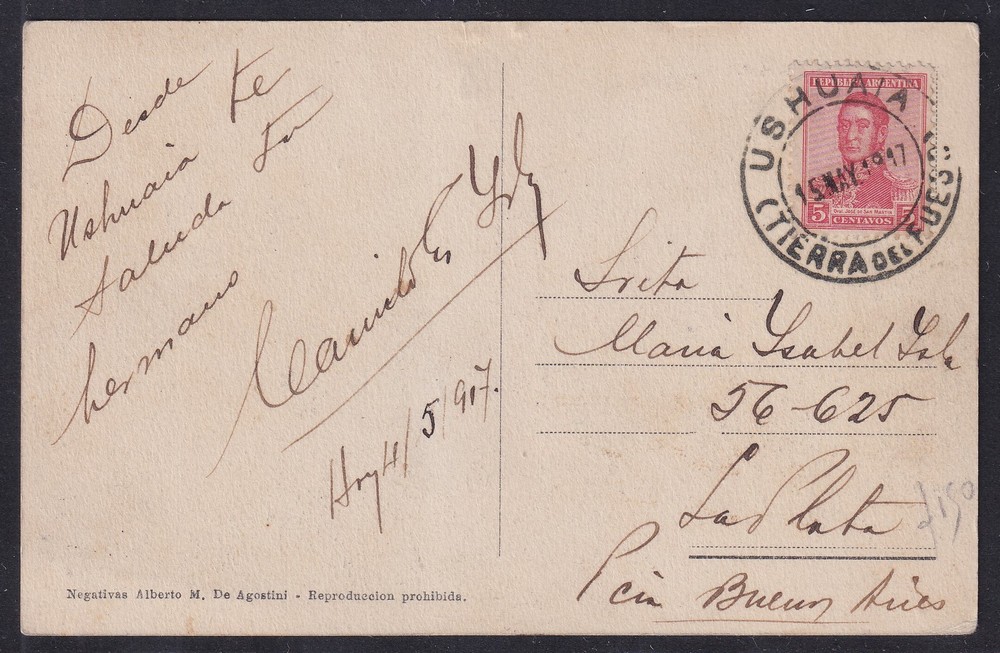 Desde
Ushuaia te
saluda tu
hermano
Camilo
Hoy 4/5/917.
REPUBLICA ARGENTINA
GRAL JOSÉ DE SAN MARTIN
5 CENTAVOS 5
USHUAIA
15 MAY 1917
(TIERRA DEL FUEGO)
Srita
Maria Ysabel Isla
56-625
La Plata
Pcia Buenos Aires
Negativas Alberto M. De Agostini - Reproduccion prohibida.